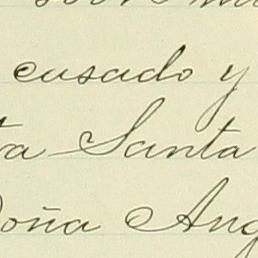 cusado y
ta Santa
Doña Ang